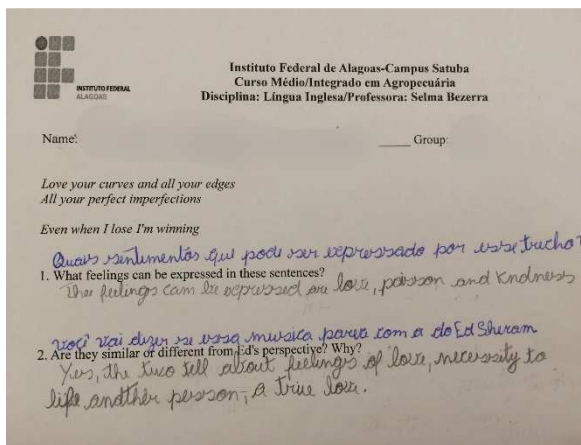 INSTITUTO FEDERAL
ALAGOAS
Instituto Federal de Alagoas-Campus Satuba
Curso Médio/Integrado em Agropecuária
Disciplina: Língua Inglesa/Professora: Selma Bezerra
Name: ____ Group:
Love your curves and all your edges
All your perfect imperfections
Even when I lose I'm winning
Quais sentimentos que pode ser expressado por esse trecho?
1. What feelings can be expressed in these sentences?
Ther feelings cam be expressed are love, poisson and Kndness
você vai dizer se essa musica parea com a do Ed Sheram
2. Are they similar or different from Ed's perspective? Why?
Yes, the two tell about feelings of love, necessity to
life andther person, a true love.